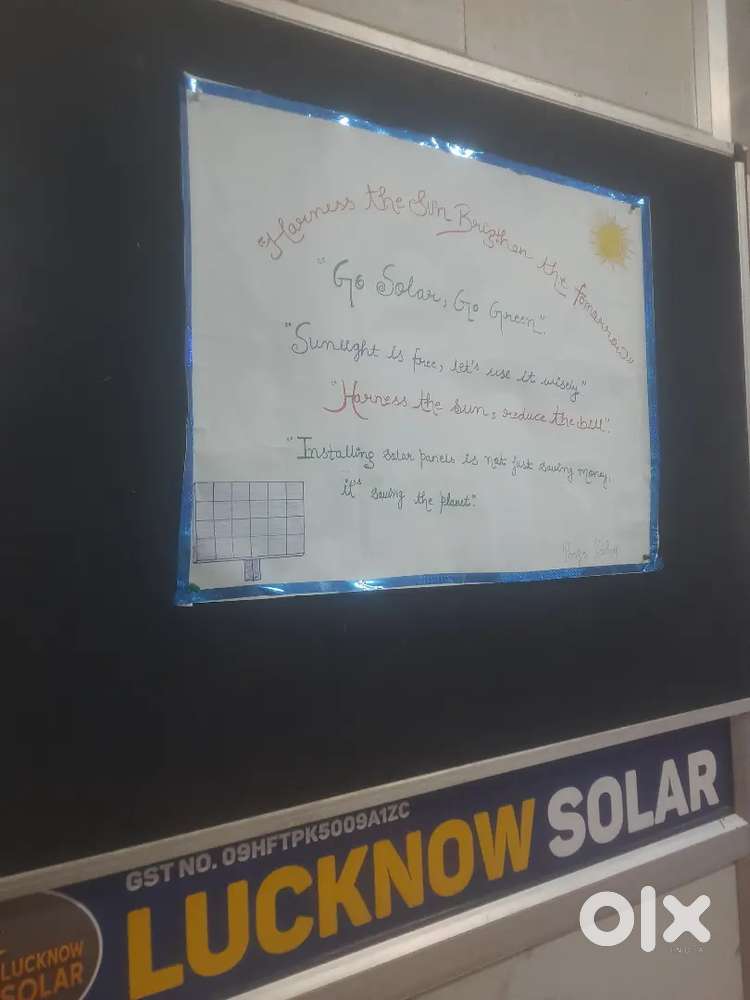 Harness the Sun Brigthen the Tomorrow"
"Go Solar, Go Green".
"Sunlight is free, let's use it wisely"
"Harness the sun, reduce the bill".
"Installing solar panels is not just saving money,
it's saving the planet".
GST NO. 09HFTPK5009A1ZC
LUCKNOW SOLAR
LUCKNOW
SOLAR
olx
INDIA